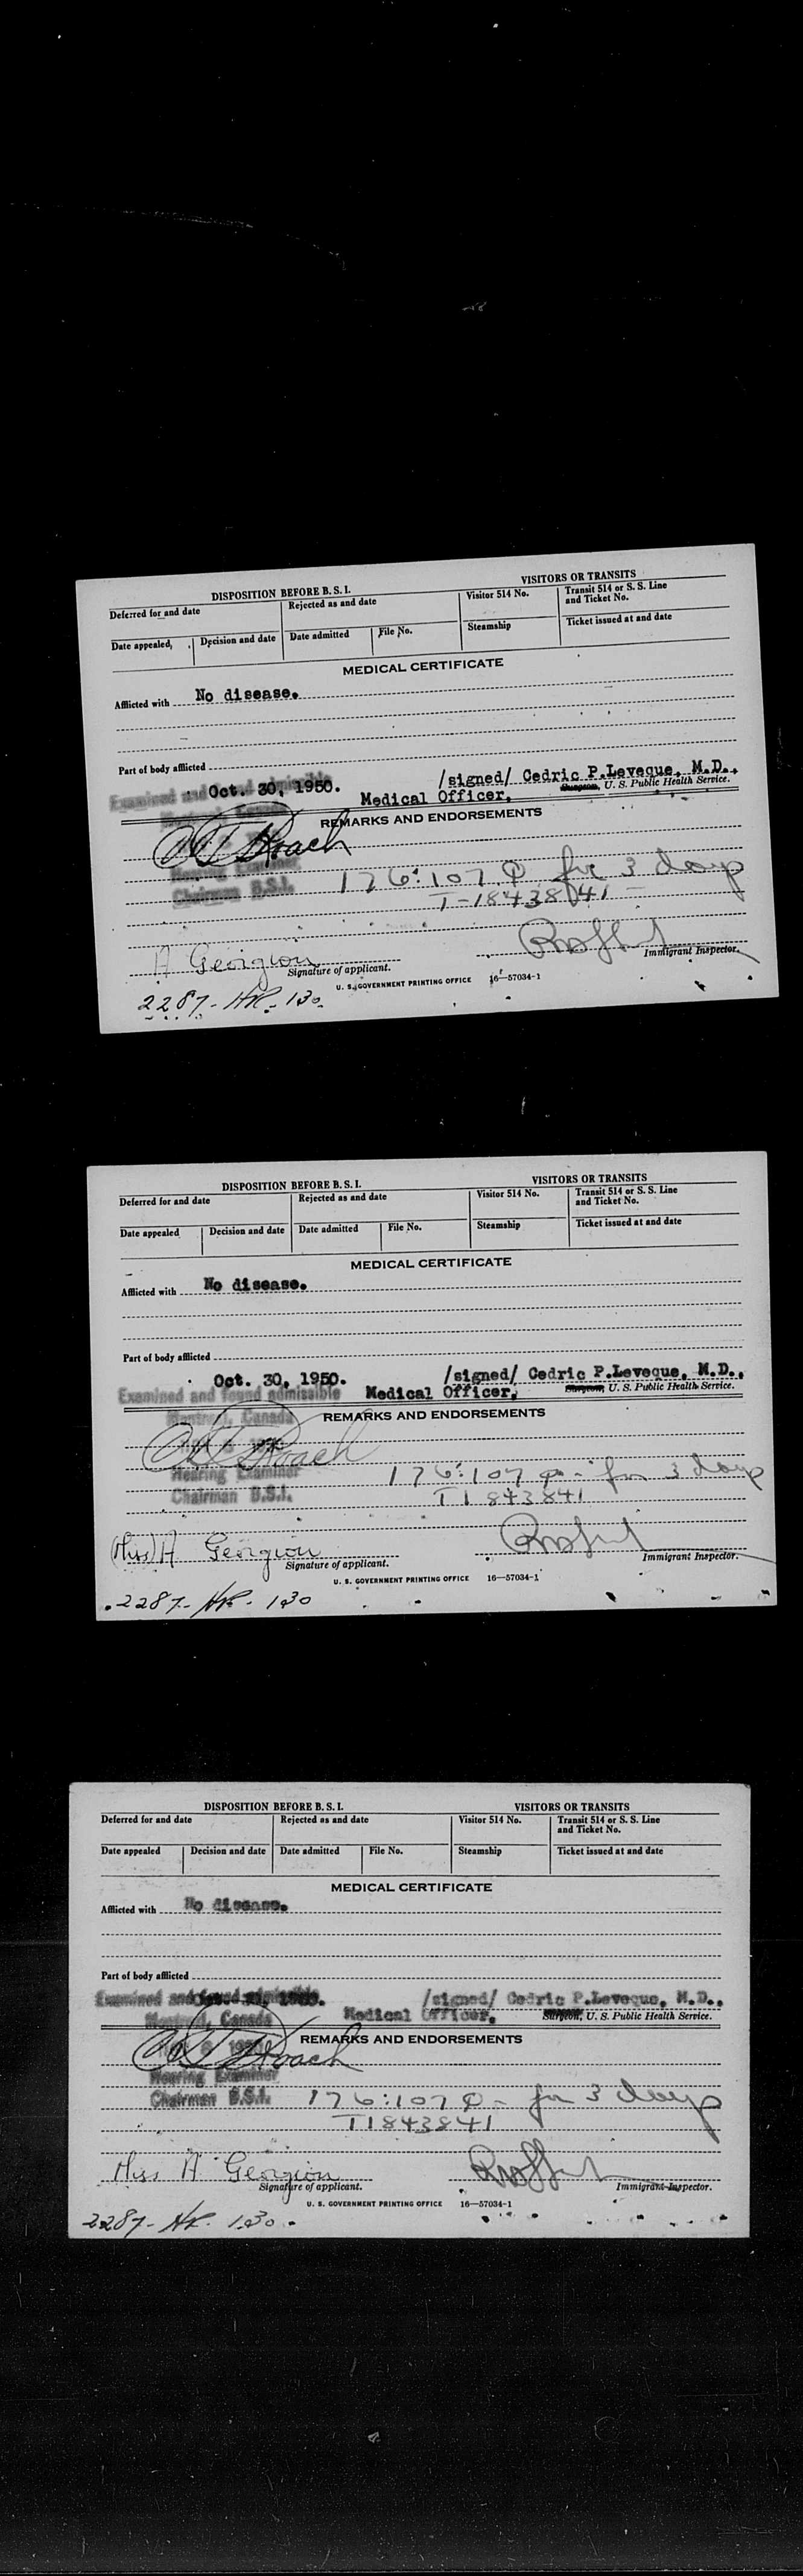 DISPOSITION BEFORE B. S. I.
VISITORS OR TRANSITS
Deferred for and date
Rejected as and date
Visitor 514 No.
Transit 514 or S. S. Line and Ticket No.
Date appealed
Decision and date
Date admitted
File No.
Steamship
Ticket issued at and date
MEDICAL CERTIFICATE
Afflicted with No disease.
Part of body afflicted
Examined and found admissible
Oct. 30, 1950.
/signed/ Cedric P.Leveque, M.D.,
Medical Officer, Surgeon, U. S. Public Health Service.
REMARKS AND ENDORSEMENTS
Roach
Hearing Examiner
Chairman B.S.I.
176:107 for 3 days
T-1843841
A Georgiou
Signature of applicant.
Immigrant Inspector.
U. S. GOVERNMENT PRINTING OFFICE 16—57034-1
2287- HR- 130
DISPOSITION BEFORE B. S. I.
VISITORS OR TRANSITS
Deferred for and date
Rejected as and date
Visitor 514 No.
Transit 514 or S. S. Line and Ticket No.
Date appealed
Decision and date
Date admitted
File No.
Steamship
Ticket issued at and date
MEDICAL CERTIFICATE
Afflicted with No disease.
Part of body afflicted
Oct. 30, 1950.
/signed/ Cedric P.Leveque, M.D.,
Examined and found admissible
Medical Officer, Surgeon, U. S. Public Health Service.
Montreal, Canada
REMARKS AND ENDORSEMENTS
Roach
Hearing Examiner
Chairman B.S.I.
176:107 for 3 days
T1843841
(Miss) A Georgiou
Signature of applicant.
Immigrant Inspector.
U. S. GOVERNMENT PRINTING OFFICE 16—57034-1
2287- HR- 130
DISPOSITION BEFORE B. S. I.
VISITORS OR TRANSITS
Deferred for and date
Rejected as and date
Visitor 514 No.
Transit 514 or S. S. Line and Ticket No.
Date appealed
Decision and date
Date admitted
File No.
Steamship
Ticket issued at and date
MEDICAL CERTIFICATE
Afflicted with No disease.
Part of body afflicted
Examined and found admissible 1950.
/signed/ Cedric P.Leveque, M.D.,
Montreal, Canada
Medical Officer, Surgeon, U. S. Public Health Service.
REMARKS AND ENDORSEMENTS
Roach
Hearing Examiner
Chairman B.S.I.
176:107 for 3 days
T1843841
Miss A Georgiou
Signature of applicant.
Immigrant Inspector.
U. S. GOVERNMENT PRINTING OFFICE 16—57034-1
2287- HR- 130